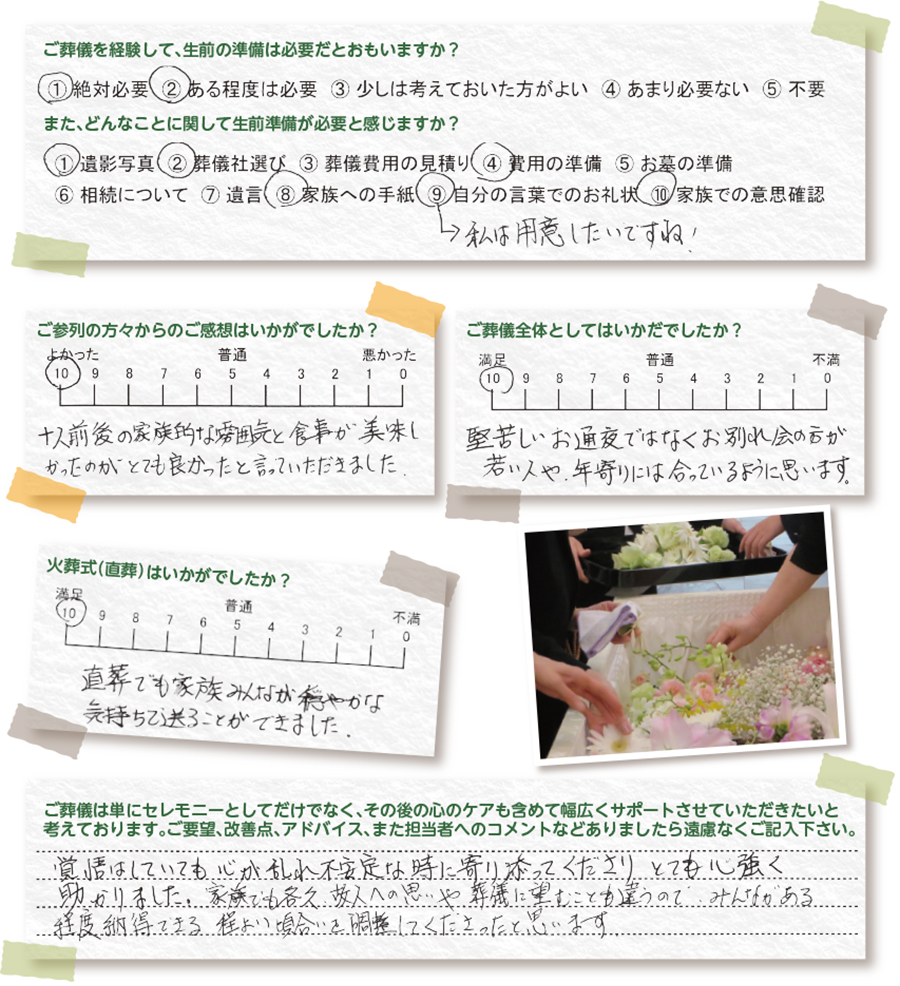 ご葬儀を経験して、生前の準備は必要だとおもいますか？
① 絶対必要 ② ある程度は必要 ③ 少しは考えておいた方がよい ④ あまり必要ない ⑤ 不要
また、どんなことに関して生前準備が必要と感じますか？
① 遺影写真 ② 葬儀社選び ③ 葬儀費用の見積り ④ 費用の準備 ⑤ お墓の準備
⑥ 相続について ⑦ 遺言 ⑧ 家族への手紙 ⑨ 自分の言葉でのお礼状 ⑩ 家族での意思確認
私は用意したいですね！
ご参列の方々からのご感想はいかがでしたか？
よかった 普通 悪かった
10 9 8 7 6 5 4 3 2 1 0
十人前後の家族的な雰囲気と食事が美味し
かったのがとても良かったと言っていただきました.
ご葬儀全体としてはいかだでしたか？
満足 普通 不満
10 9 8 7 6 5 4 3 2 1 0
堅苦しいお通夜ではなくお別れ会の方が
若い人や、年寄りには合っているように思います。
火葬式(直葬)はいかがでしたか？
満足 普通 不満
10 9 8 7 6 5 4 3 2 1 0
直葬でも家族みんなが穏やかな
気持ちで送ることができました.
ご葬儀は単にセレモニーとしてだけでなく、その後の心のケアも含めて幅広くサポートさせていただきたいと
考えております。ご要望、改善点、アドバイス、また担当者へのコメントなどありましたら遠慮なくご記入下さい。
覚悟はしていても心が乱れ不安定な時に寄り添ってくださり とても心強く
助かりました。家族でも各々、故人への思いや葬儀に望むことも違うので、みんながある
程度納得できる 程よい頃合いを調整してくださったと思います.